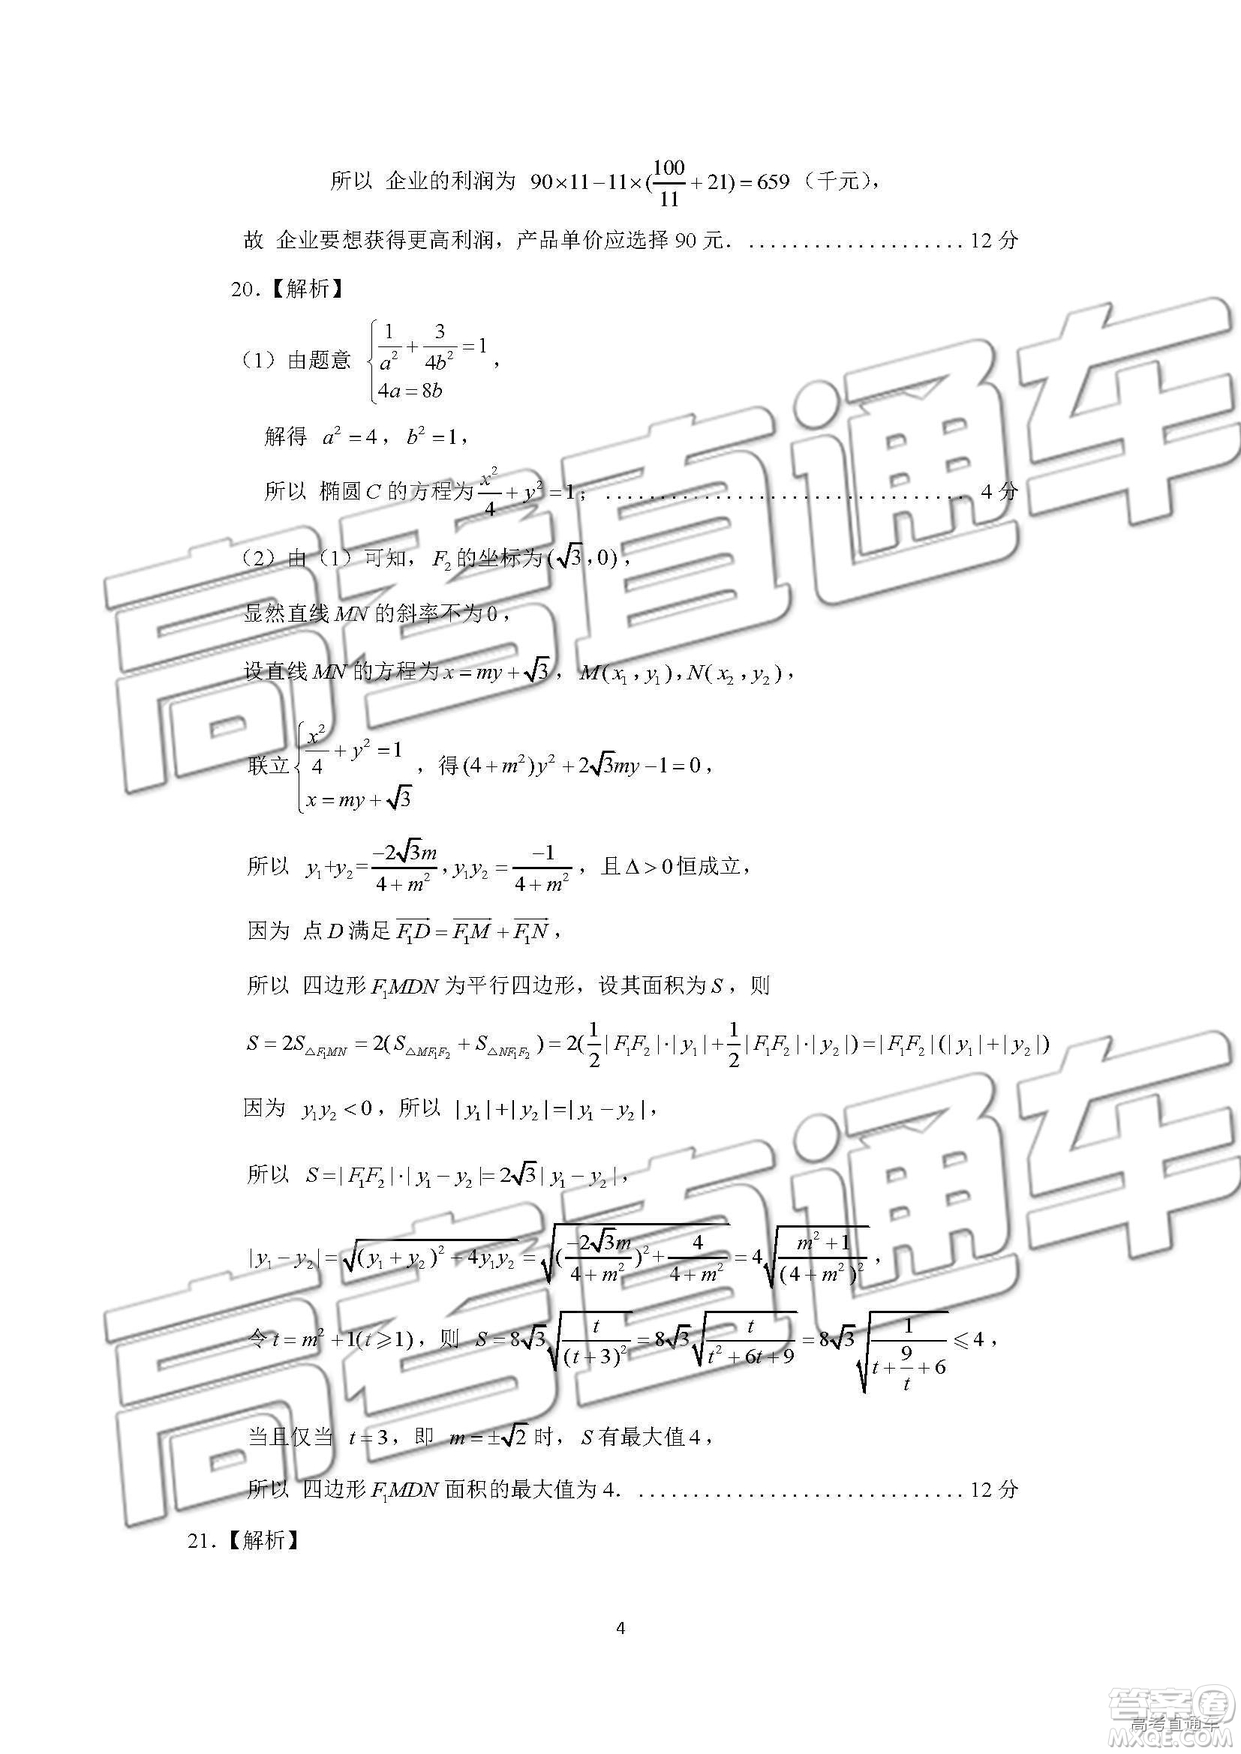 所以 企业的利润为 90×11−11×(100/11+21)=659（千元），
故 企业要想获得更高利润，产品单价应选择 90 元．....................12 分
20.【解析】
（1）由题意 {1/a²+3/4b²=1, 4a=8b，
解得 a²=4，b²=1，
所以 椭圆 C 的方程为 x²/4+y²=1；................................. 4 分
（2）由（1）可知，F₂的坐标为(√3,0)，
显然直线MN的斜率不为0，
设直线MN的方程为x=my+√3，M(x₁,y₁),N(x₂,y₂)，
联立{x²/4+y²=1, x=my+√3，得(4+m²)y²+2√3my−1=0，
所以 y₁+y₂=−2√3m/(4+m²),y₁y₂=−1/(4+m²)，且Δ>0恒成立，
因为 点D满足F₁D=F₁M+F₁N，
所以 四边形F₁MDN为平行四边形，设其面积为S，则
S=2S△F₁MN=2(S△MF₁F₂+S△NF₁F₂)=2(1/2|F₁F₂|·|y₁|+1/2|F₁F₂|·|y₂|)=|F₁F₂|(|y₁|+|y₂|)
因为 y₁y₂<0，所以 |y₁|+|y₂|=|y₁−y₂|，
所以 S=|F₁F₂|·|y₁−y₂|=2√3|y₁−y₂|，
|y₁−y₂|=√((y₁+y₂)²−4y₁y₂)=√((−2√3m/(4+m²))²+4/(4+m²))=4√((m²+1)/(4+m²)²)，
令t=m²+1(t⩾1)，则 S=8√3√(t/(t+3)²)=8√3√(t/(t²+6t+9))=8√3√(1/(t+9/t+6))⩽4，
当且仅当 t=3，即 m=±√2时，S有最大值4，
所以 四边形F₁MDN面积的最大值为4．..............................12 分
21.【解析】
4
高考直通车
高考直通车
答案圈
高考直通车
MXQE.COM